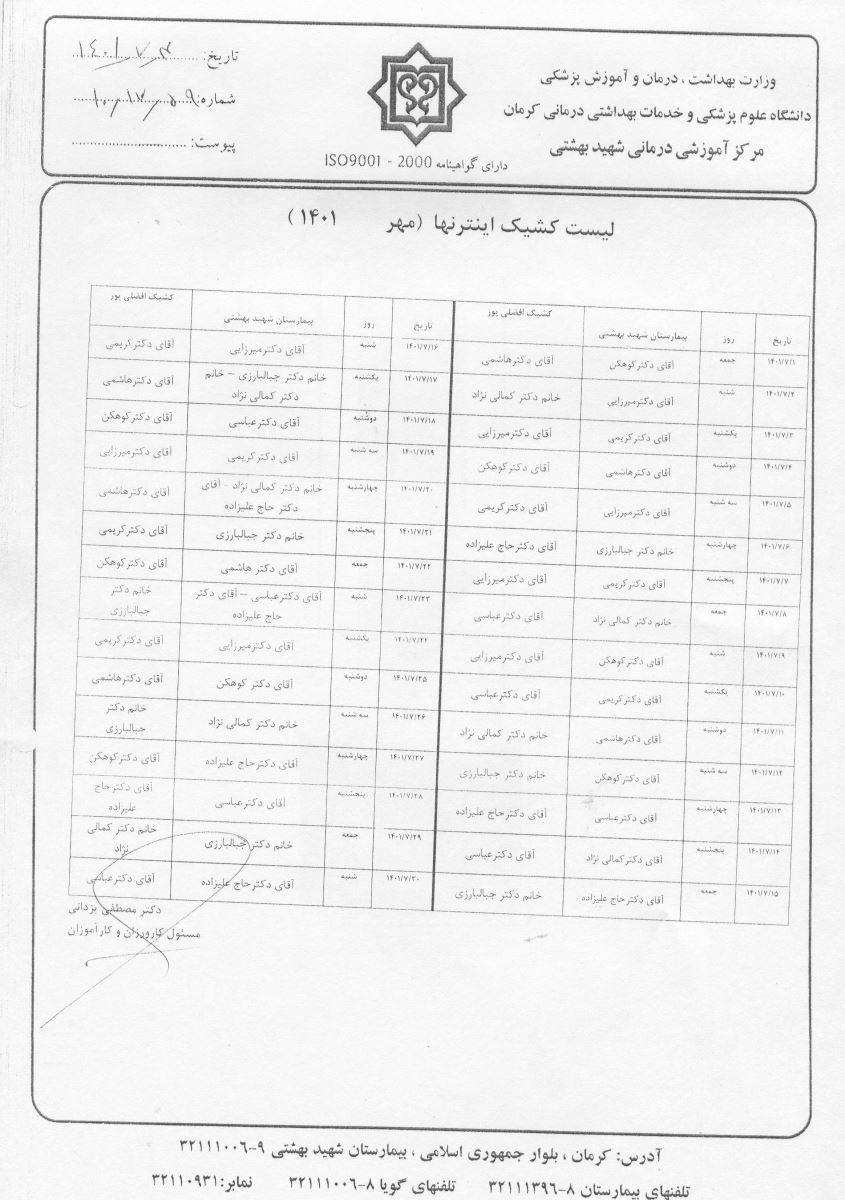 وزارت بهداشت ، درمان و آموزش پزشکی
دانشگاه علوم پزشکی و خدمات بهداشتی درمانی کرمان
مرکز آموزشی درمانی شهید بهشتی
دارای گواهینامه ISO9001 - 2000
تاریخ: ۱۴۰۱/۷/۴
شماره:
پیوست:
لیست کشیک اینترنها (مهر ۱۴۰۱)
تاریخ روز بیمارستان شهید بهشتی کشیک افضلی پور
۱۴۰۱/۷/۱ جمعه آقای دکترکوهکن آقای دکترهاشمی
۱۴۰۱/۷/۲ شنبه آقای دکترمیرزایی خانم دکتر کمالی نژاد
۱۴۰۱/۷/۳ یکشنبه آقای دکترکریمی آقای دکترمیرزایی
۱۴۰۱/۷/۴ دوشنبه آقای دکترهاشمی آقای دکترکوهکن
۱۴۰۱/۷/۵ سه شنبه آقای دکترمیرزایی آقای دکترکریمی
۱۴۰۱/۷/۶ چهارشنبه خانم دکتر جبالبارزی آقای دکترحاج علیزاده
۱۴۰۱/۷/۷ پنجشنبه آقای دکترکریمی آقای دکترمیرزایی
۱۴۰۱/۷/۸ جمعه خانم دکتر کمالی نژاد آقای دکترعباسی
۱۴۰۱/۷/۹ شنبه آقای دکترکوهکن آقای دکترمیرزایی
۱۴۰۱/۷/۱۰ یکشنبه آقای دکترکریمی آقای دکترعباسی
۱۴۰۱/۷/۱۱ دوشنبه آقای دکترهاشمی خانم دکتر کمالی نژاد
۱۴۰۱/۷/۱۲ سه شنبه آقای دکترکوهکن خانم دکتر جبالبارزی
۱۴۰۱/۷/۱۳ چهارشنبه آقای دکترعباسی آقای دکترحاج علیزاده
۱۴۰۱/۷/۱۴ پنجشنبه آقای دکترکمالی نژاد آقای دکترعباسی
۱۴۰۱/۷/۱۵ جمعه آقای دکترحاج علیزاده خانم دکتر جبالبارزی
تاریخ روز بیمارستان شهید بهشتی کشیک افضلی پور
۱۴۰۱/۷/۱۶ شنبه آقای دکترمیرزایی آقای دکترکریمی
۱۴۰۱/۷/۱۷ یکشنبه خانم دکتر جبالبارزی – خانم دکتر کمالی نژاد آقای دکترهاشمی
۱۴۰۱/۷/۱۸ دوشنبه آقای دکترعباسی آقای دکترکوهکن
۱۴۰۱/۷/۱۹ سه شنبه آقای دکترکریمی آقای دکترمیرزایی
۱۴۰۱/۷/۲۰ چهارشنبه خانم دکتر کمالی نژاد - آقای دکتر حاج علیزاده آقای دکترهاشمی
۱۴۰۱/۷/۲۱ پنجشنبه خانم دکتر جبالبارزی آقای دکترکریمی
۱۴۰۱/۷/۲۲ جمعه آقای دکتر هاشمی آقای دکترکوهکن
۱۴۰۱/۷/۲۳ شنبه آقای دکترعباسی – آقای دکتر حاج علیزاده خانم دکتر جبالبارزی
۱۴۰۱/۷/۲۴ یکشنبه آقای دکترمیرزایی آقای دکترکریمی
۱۴۰۱/۷/۲۵ دوشنبه آقای دکتر کوهکن آقای دکترهاشمی
۱۴۰۱/۷/۲۶ سه شنبه خانم دکتر کمالی نژاد خانم دکتر جبالبارزی
۱۴۰۱/۷/۲۷ چهارشنبه آقای دکترحاج علیزاده آقای دکترکوهکن
۱۴۰۱/۷/۲۸ پنجشنبه آقای دکترعباسی آقای دکترحاج علیزاده
۱۴۰۱/۷/۲۹ جمعه خانم دکتر جبالبارزی خانم دکتر کمالی نژاد
۱۴۰۱/۷/۳۰ شنبه آقای دکترحاج علیزاده آقای دکترعباسی
دکتر مصطفی یزدانی
مسئول کارورزان و کارآموزان
آدرس: کرمان ، بلوار جمهوری اسلامی ، بیمارستان شهید بهشتی ۹-۳۲۱۱۱۰۰۶
تلفنهای بیمارستان ۸-۳۲۱۱۱۳۹۶ تلفنهای گویا ۸-۳۲۱۱۱۰۰۶ نمابر:۳۲۱۱۰۹۳۱